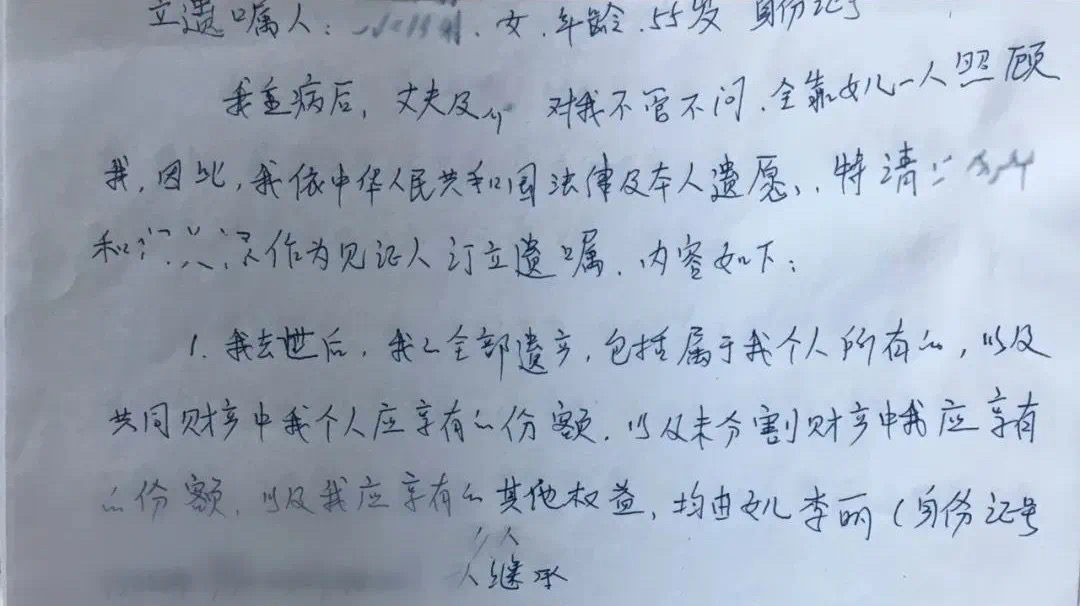 立遗嘱人: 女.年龄.55岁 身份证号
我重病后,丈夫及 对我不管不问.全靠女儿一人照顾
我,因此,我依中华人民共和国法律及本人遗愿,.特请
和 作为见证人订立遗嘱.内容如下:
1.我去世后,我的全部遗产,包括属于我个人所有的,以及
共同财产中我个人应享有的份额.以及未分割财产中我应享有
的份额,以及我应享有的其他权益,均由女儿李丽(身份证号
人继承